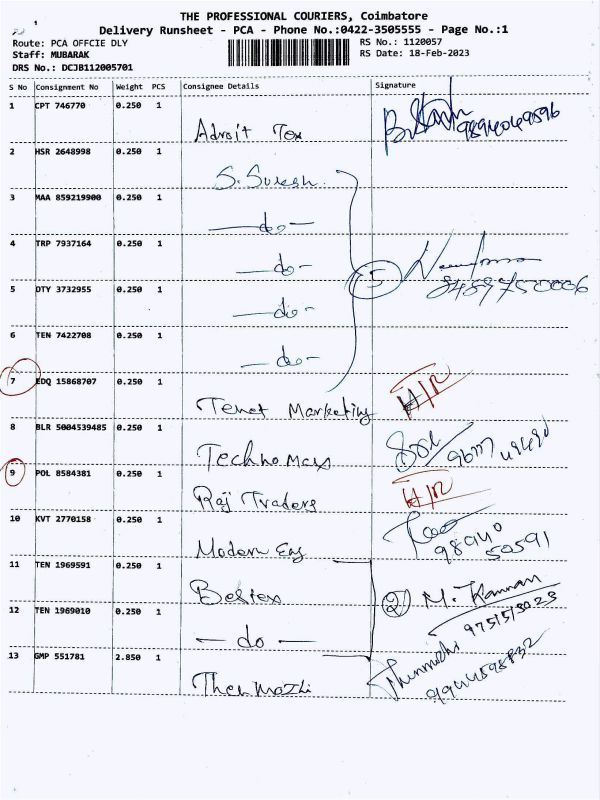 THE PROFESSIONAL COURIERS, Coimbatore
Delivery Runsheet - PCA - Phone No.:0422-3505555 - Page No.:1
Route: PCA OFFCIE DLY
RS No.: 1120057
Staff: MUBARAK
RS Date: 18-Feb-2023
DRS No.: DCJB112005701
S No Consignment No Weight PCS Consignee Details Signature
1 CPT 746770 0.250 1
Adroit Tex 9894049596
2 HSR 2648998 0.250 1
S. Suresh
3 MAA 859219900 0.250 1
—do—
4 TRP 7937164 0.250 1
—do—
5 DTY 3732955 0.250 1
5 8489750006
—do—
6 TEN 7422708 0.250 1
—do—
7 EDQ 15868707 0.250 1
Tenet Marketing H/R
8 BLR 5004539485 0.250 1
Technomax
9 POL 8584381 0.250 1
Raj Traders H/R
10 KVT 2770158 0.250 1
Modern Eng 98940 50591
11 TEN 1969591 0.250 1
Bestex 2 M. Kannan
12 TEN 1969010 0.250 1
— do — 9751513023
13 GMP 551781 2.850 1
Thenmozhi 9944598832